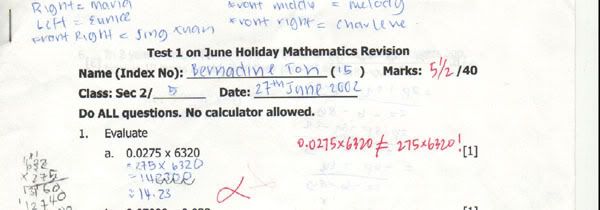 Right = Maria
Left = Eunice
Front Right = Jing Xuan
Front middle = Melody
Front right = Charlene
Test 1 on June Holiday Mathematics Revision
Name (Index No): Bernadine Ton (15) Marks: 5 1/2 /40
Class: Sec 2/ 5 Date: 27th June 2002
Do ALL questions. No calculator allowed.
1. Evaluate
a. 0.0275 x 6320 0.0275x6320 ≠ 275x6320! [1]
= 275 x 6320
= 14.23
632
x 275
12740